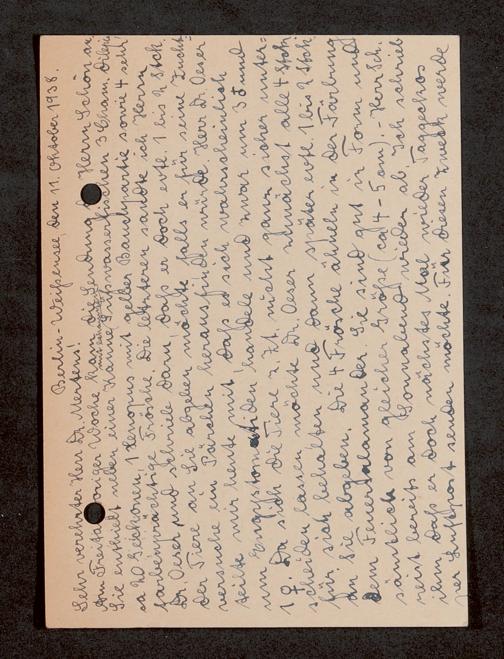 Berlin-Weißensee, den 11. Oktober 1938.
Sehr verehrter Herr Dr. Mertens!
Am Freitag voriger Woche kam die Sendung Herrn Schön an.
Sie enthielt neben einer Kanne Süsswasserfischen 3 Cham. dilepis
ca 20 Geckonen, 1 Xenopus mit gelber Bauchpartie sowie 4 sehr
farbenprächtige Frösche. Die letzteren sandte ich Herrn
Dr. Oeser und schrieb dann, daß er doch evtl. 1 bis 2 Stck.
der Tiere an Sie abgeben möchte falls er für seine Zucht-
versuche ein Pärchen herausfinden würde. Herr Dr. Oeser
teilte mir heute mit, daß es sich wahrscheinlich
um Engystomatiden handele und zwar um 3 ♂ und
1 ♀. Da sich die Tiere z. Zt. nicht ganz sicher unter-
scheiden lassen möchte Dr. Oeser zunächst alle 4 Stck.
für sich behalten und dann später evtl. 1 bis 2 Stck
an Sie abgeben. Die 4 Frösche ähneln in der Färbung
dem Feuersalamander. Sie sind gut in Form und
sämtlich von gleicher Größe (ca 4-5 cm). - Herr Sch.
reist bereits am Sonnabend wieder ab. Ich schrieb
ihm, daß er doch nächstes Mal wieder Taggeckos
per Luftpost senden möchte. Für diesen Zweck werde